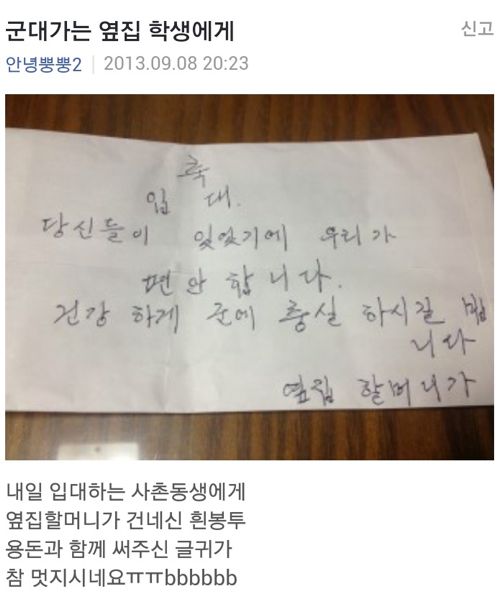 군대가는 옆집 학생에게
신고
안녕뿅뿅2 | 2013.09.08 20:23
축
입 대.
당신들이 있었기에 우리가
편안 합니다.
건강 하게 군에 충실 하시길 빕
니다
옆집 할머니가
내일 입대하는 사촌동생에게
옆집할머니가 건네신 흰봉투
용돈과 함께 써주신 글귀가
참 멋지시네요ㅠㅠbbbbbb